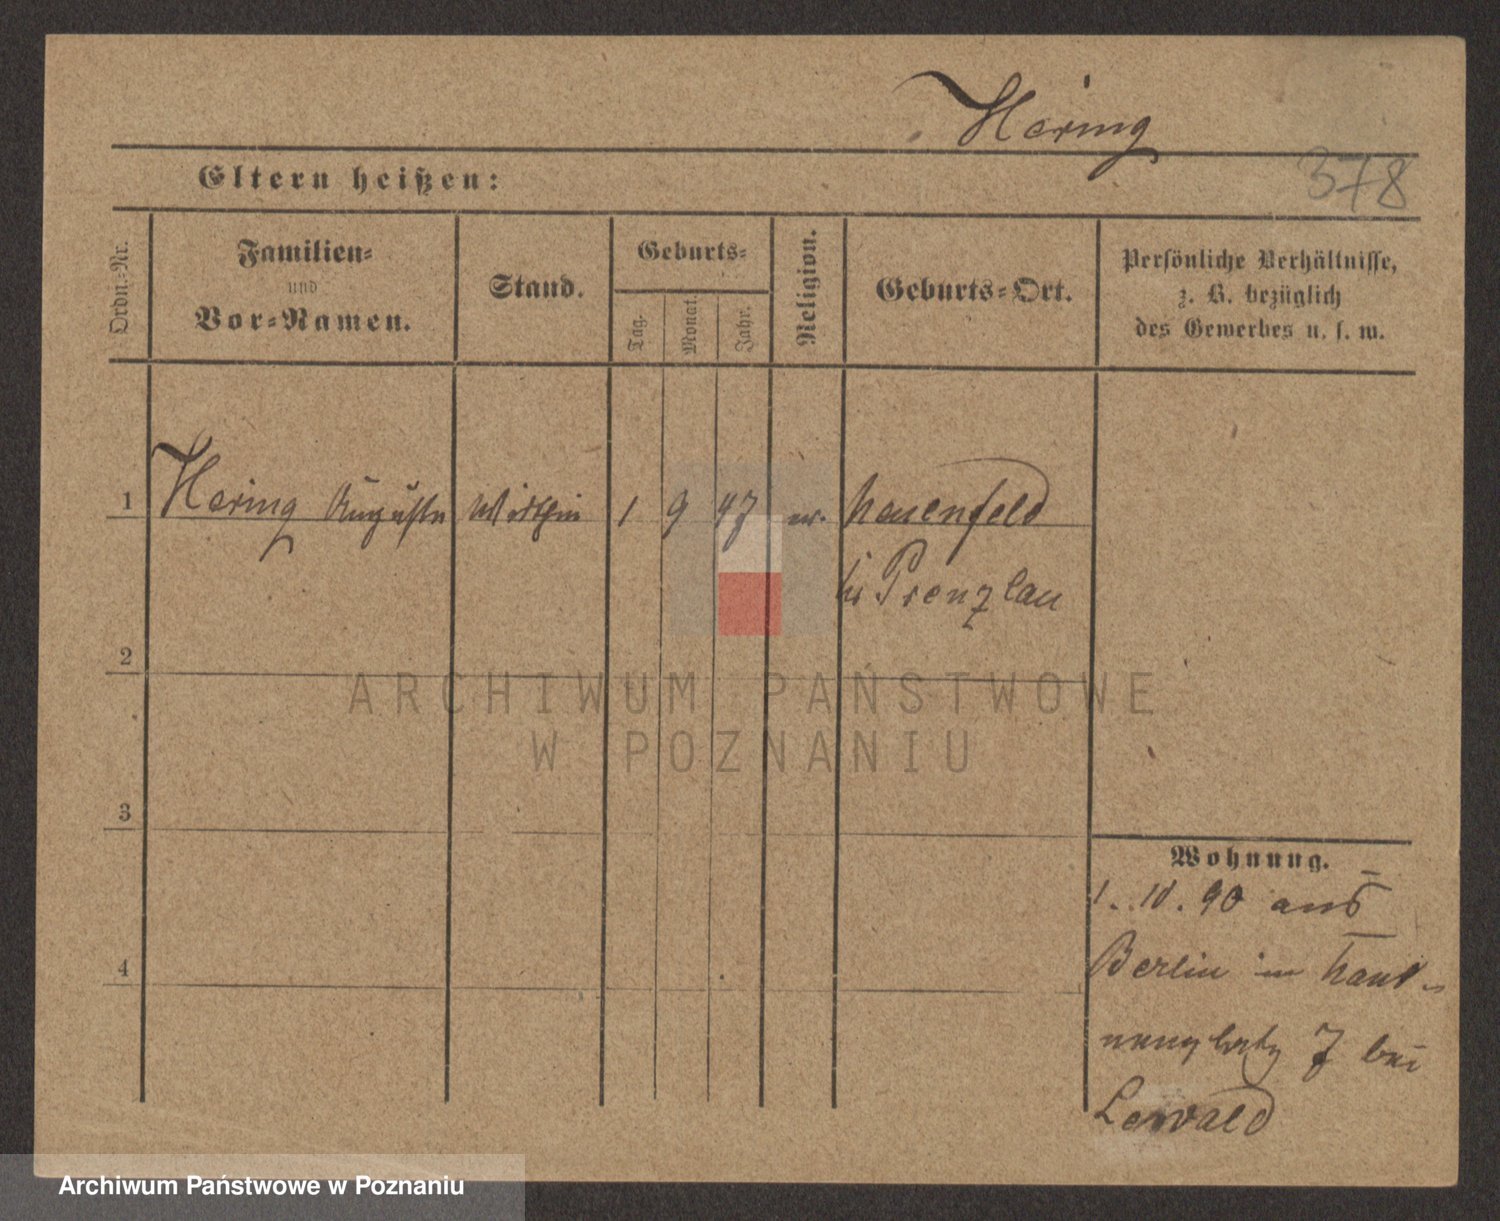 Hering
378
Eltern heißen:
Ordn.-Nr.
Familien-
und
Vor-Namen.
Stand.
Geburts-
Tag.
Monat.
Jahr.
Religion.
Geburts-Ort.
Persönliche Verhältnisse,
z. B. bezüglich
des Gewerbes u. s. w.
1 Hering Auguste Wirthin 1 9 47 ev.
bei Prenzlau
2
3
4
Wohnung.
1. 10. 90 aus
Berlin in
7 bei
Lewald
ARCHIWUM PAŃSTWOWE
W POZNANIU
Archiwum Państwowe w Poznaniu